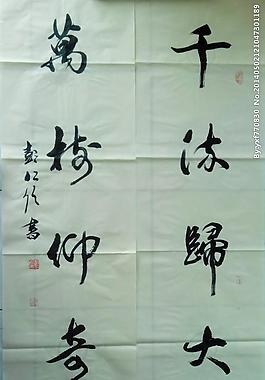 千流歸大
萬樹仰奇
彭仁書
By:yxf770830 No:20140502121047301189